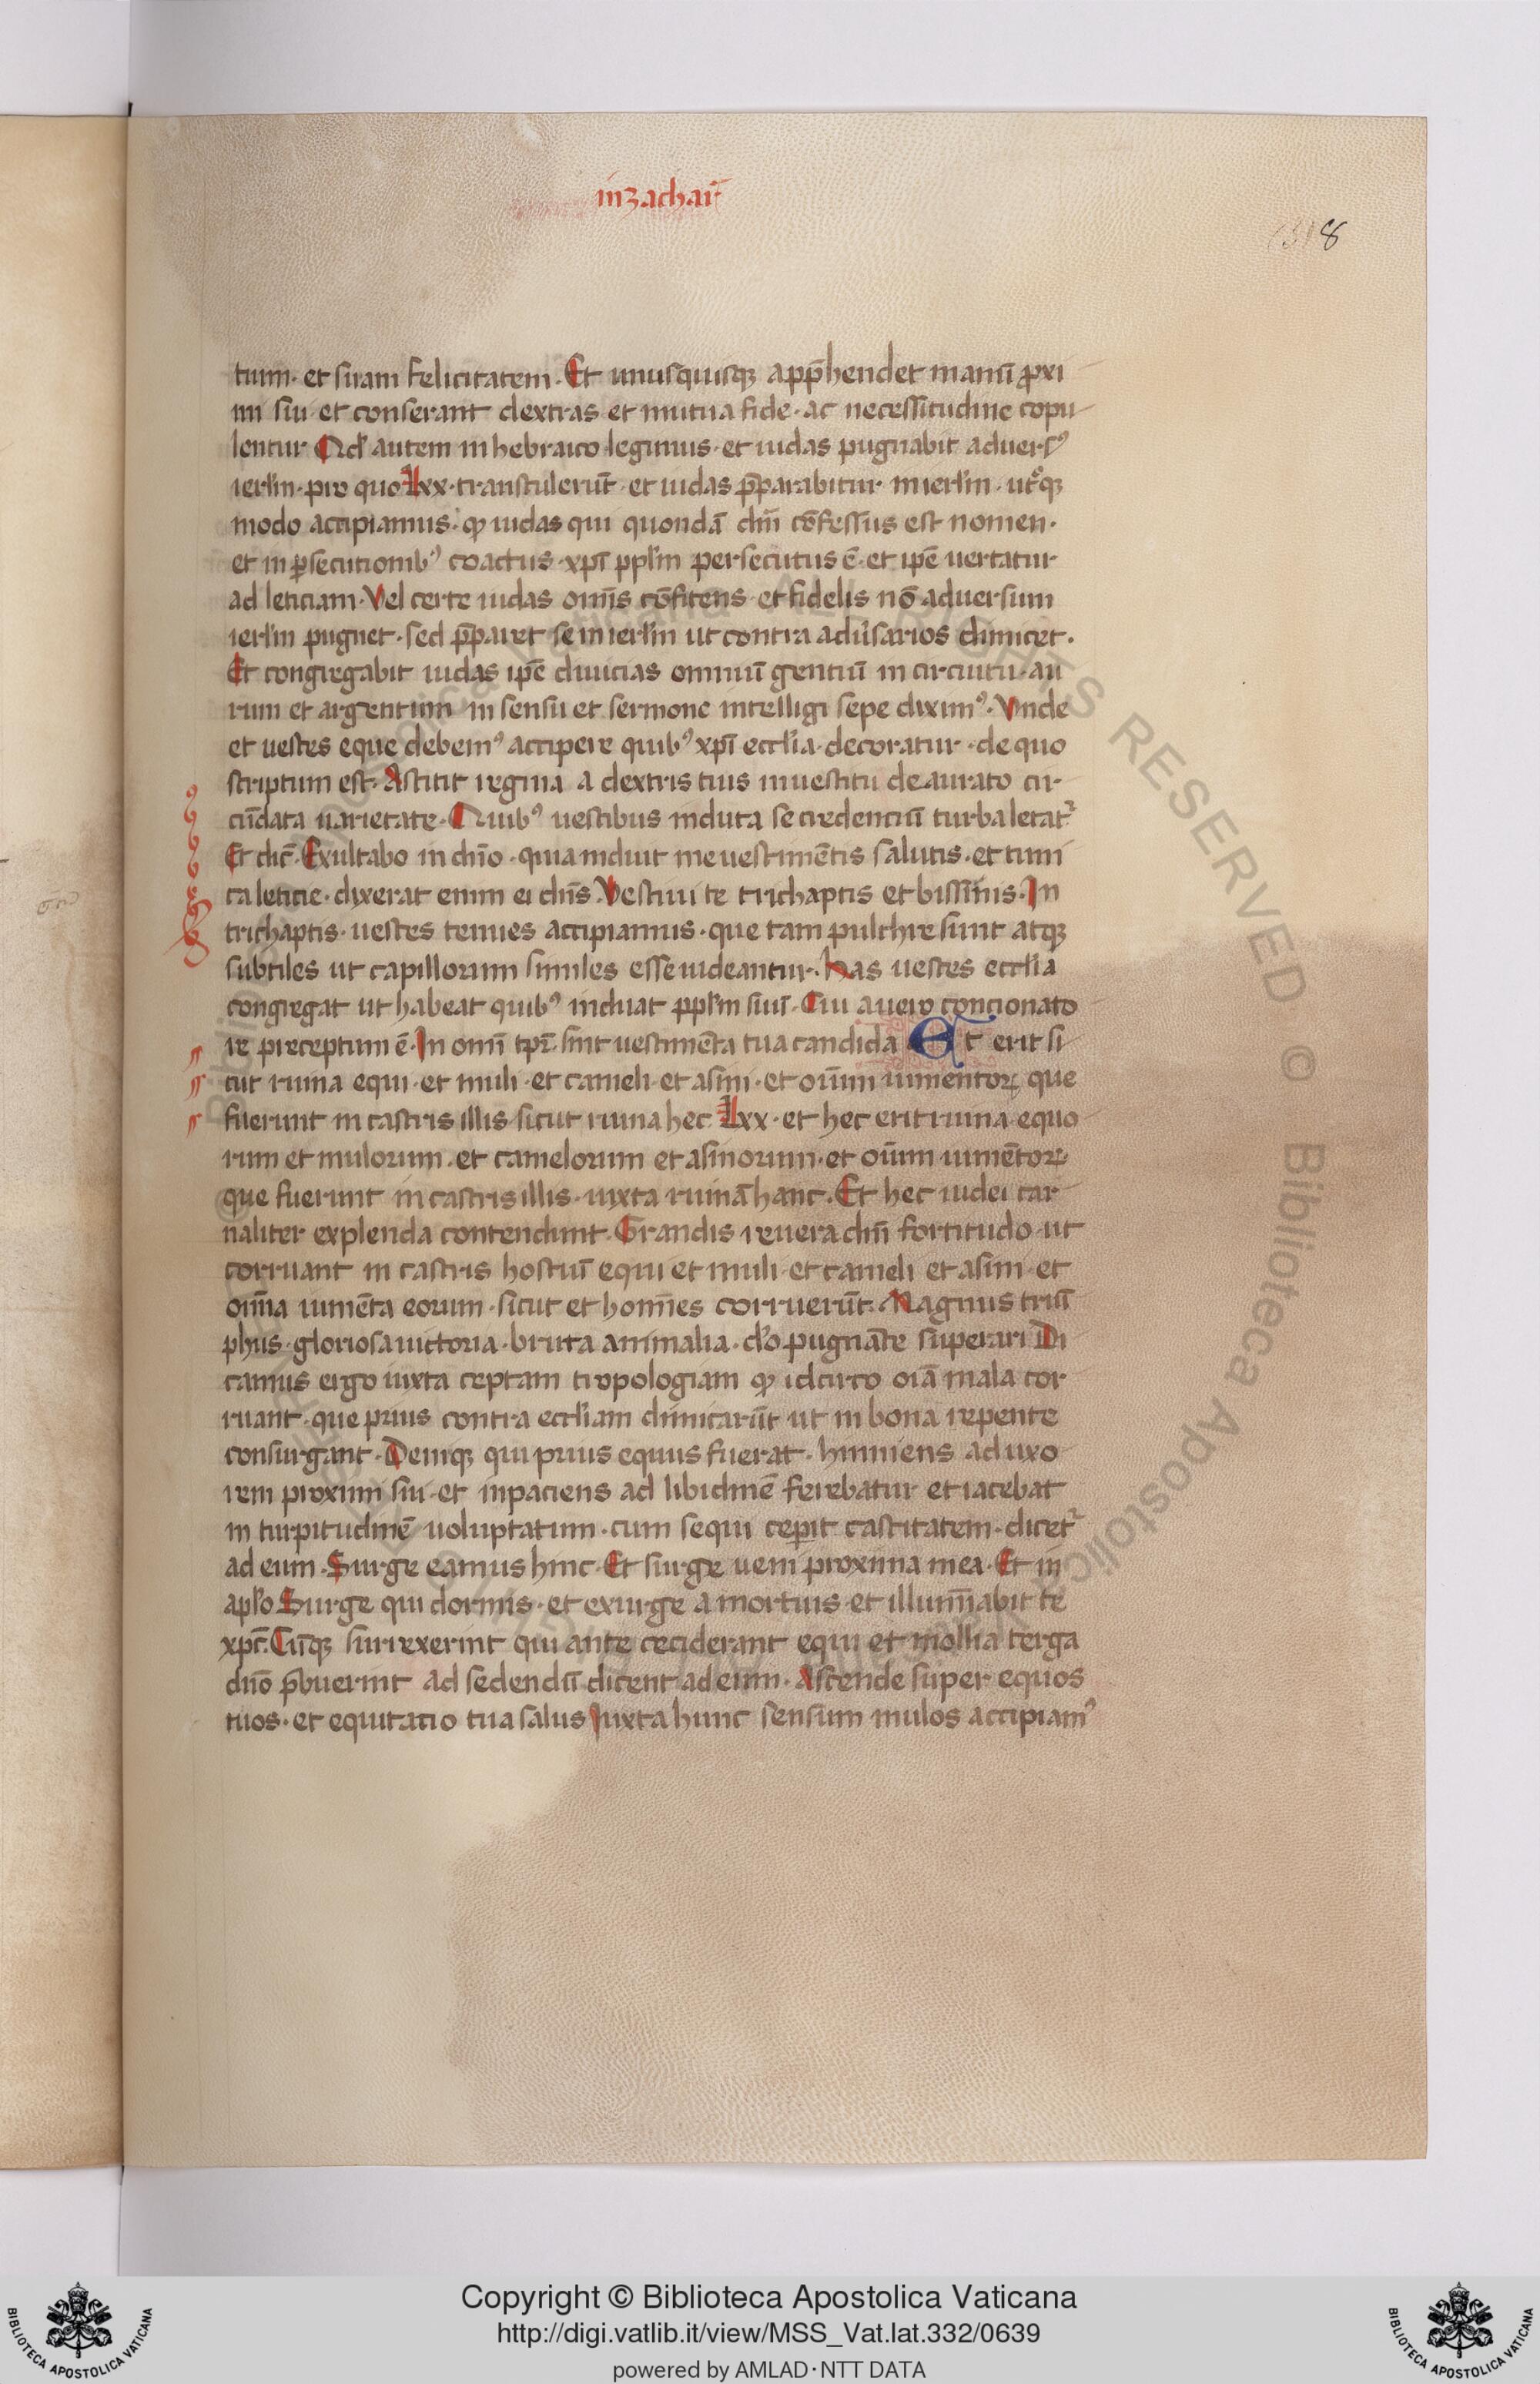 in zachar̄
318
tum· et suam felicitatem· Et unusquisqꝫ app̄hendet manū ꝓxi
mi sui· et conserant dextras et mutua fide· ac necessitudine copu
lentur· Qd̓ autem in hebraico legimus· et iudas pugnabit aduersꝰ
ierl̓m· pro quo Lxx· transtulerūt· et iudas p̄parabitur in ierl̓m· utͦqꝫ
modo accipiamus· ꝙ iudas qui quondā dn̄i cōfessus est nomen·
et in ꝑsecutionibꝰ coactus· xp̄i ppl̓m persecutus ē· et ip̄e uertatur
ad leticiam· Vel certe iudas omīs cōfitens· et fidelis nō aduersum
ierl̓m pugnet· sed p̄paret se in ierl̓m ut contra adu̓sarios dimicet·
Et congregabit iudas ip̄e diuicias omniū gentiū in circuitu· au
rum et argentum in sensu et sermone intelligi sepe diximꝰ· Vnde
et uestes eque debemꝰ accipere quibꝰ xp̄i eccl̓ia· decoratur· de quo
scriptum est· Astitit regina a dextris tuis in uestitu deaurato cir
cūdata uarietate· Quibꝰ uestibus induta se credenciū turba letat᷑
Et dic̄· Exultabo in dn̄o· quia induit me uestimētis salutis· et tuni
ca leticie· dixerat enim ei dn̄s· Vestiui te trichaptis et bissinis· In
trichaptis· uestes tenues accipiamus· que tam pulchre sunt atqꝫ
subtiles ut capillorum similes esse uideantur· Has uestes eccl̓ia
congregat ut habeat quibꝰ induat ppl̓m suū· Cui a uero concionato
re preceptum ē· In omī tp̄r· sint uestimēta tua candida Et erit si
cut ruina equi· et muli· et cameli· et asini· et oīum iumentoꝝ que
fuerunt in castris illis sicut ruina hec Lxx· et hec erit ruina equo
rum et mulorum· et camelorum et asinorum· et oīum iumētoꝝ
que fuerunt in castris illis· iuxta ruinā hanc· Et hec iudei car
naliter explenda contendunt· Grandis reuera dn̄i fortitudo· ut
corruant in castris hostiū equi et muli· et cameli et asini· et
om̄ia iumēta eorum· sicut et homīes corruerūt· Magnus triū
phus· gloriosa uictoria· bruta animalia· d̓o pugnāte superari Di
camus ergo iuxta ceptam tropologiam ꝙ idcirco oīa mala cor
ruant· que prius contra eccl̓iam dimicarūt ut in bona repente
consurgant· Deniqꝫ qui prius equus fuerat· hinniens ad uxo
rem proximi sui· et inpaciens ad libidinē ferebatur et iacebat
in turpitudinē uoluptatum· cum sequi ceperit castitatem· dicet᷑
ad eum· Surge eamus hinc· Et surge ueni proxima mea· Et in
apl̓o Surge qui dormis· et exurge a mortuis et illumīabit te
xp̄c· Cūqꝫ surrexerint qui ante ceciderant equi et mollia terga
dn̄o p̄buerint ad sedendū dicent ad eum· Ascende super equos
tuos· et equitatio tua salus Iuxta hunc sensum mulos accipiamꝰ
Copyright © Biblioteca Apostolica Vaticana
http://digi.vatlib.it/view/MSS_Vat.lat.332/0639
powered by AMLAD·NTT DATA